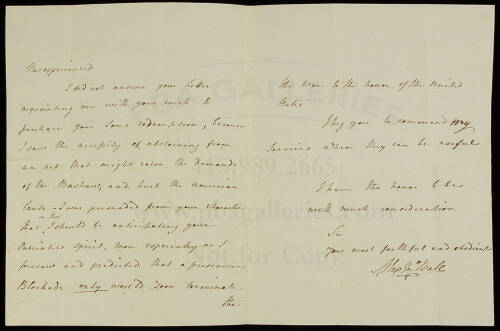 Unexperienced
I did not answer your letter
acquainting me with your wish to
purchase your Sons redemption, because
I saw the necessity of abstaining from
an act that might raise the demands
of the Bashaw, and hurt the American
Cause – I was persuaded from your character
in this
that I should be anticipating your
Patriotic Spirit, more especially as I
foresaw and predicted that a persevering
Blockade only would soon terminate
the
the War to the honor of the United
States
I beg you to command my
Services when they can be useful
I have the honor to be
with much consideration
Sir
your most faithful and obedient
Alexr Jno Ball
PBA GALLERIES
415.989.2665
www.pbagalleries.com
Not for Copy